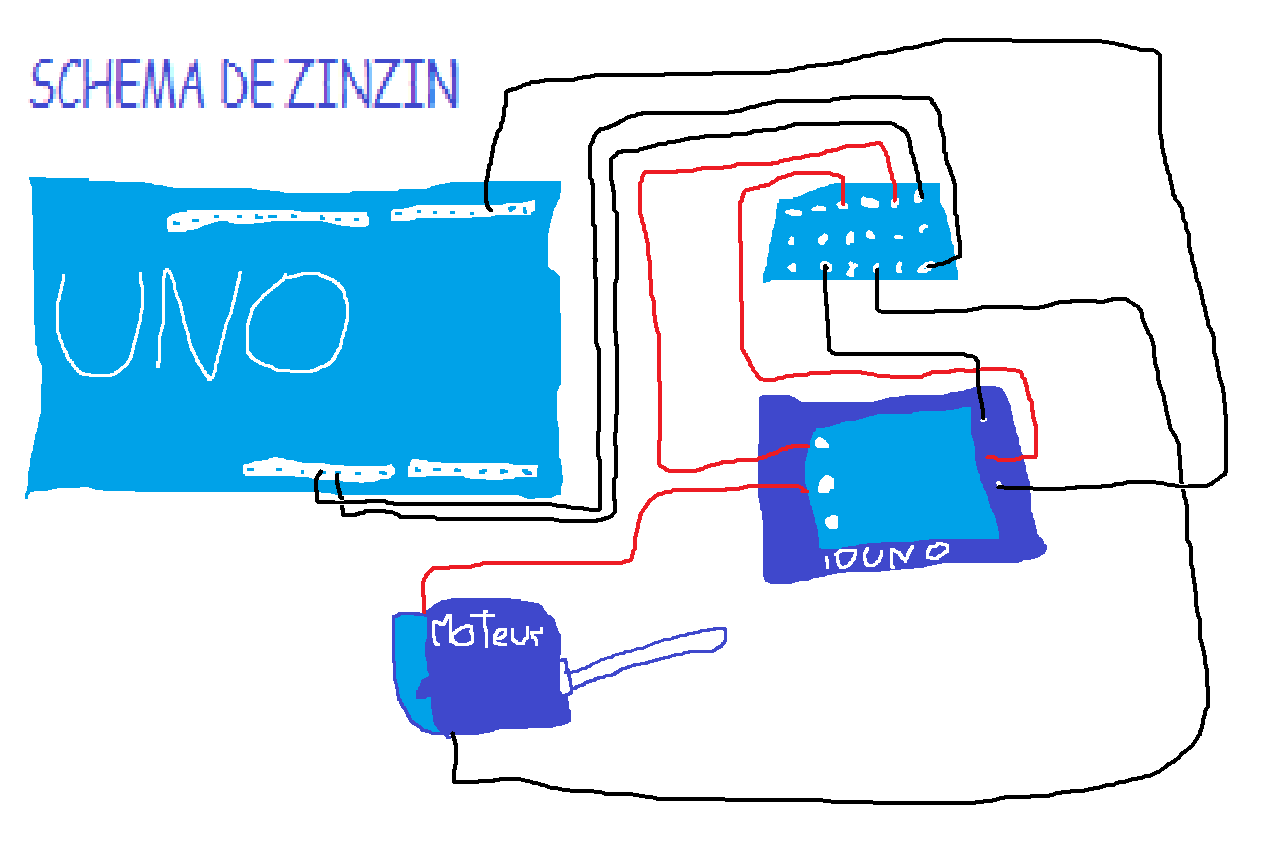 SCHEMA DE ZINZIN
UNO
IDUNO
MoTeur